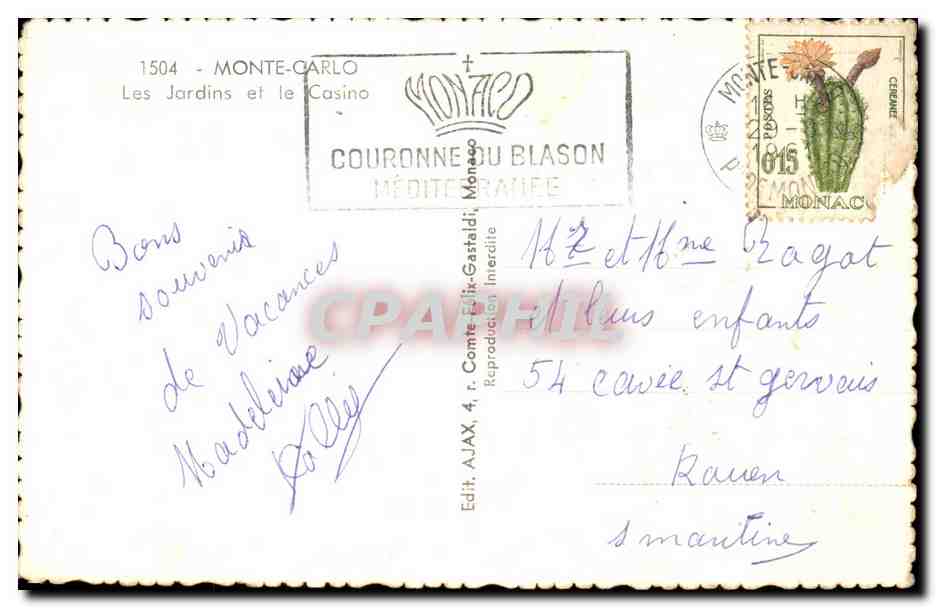 1504 - MONTE-CARLO
Les Jardins et le Casino
MONACO
COURONNE DU BLASON
MÉDITERRANÉE
MONTE-
POSTES
CEREANEE
0.15
MONACO
Bons
souvenirs
de Vacances
Madeleine
CPAPHIL
Edit. AJAX, 4, r. Comte Félix-Gastaldi, Monaco
Reproduction Interdite
Mr et Mme Ragot
et leurs enfants
54 cavée st gervais
Rouen
s maritime